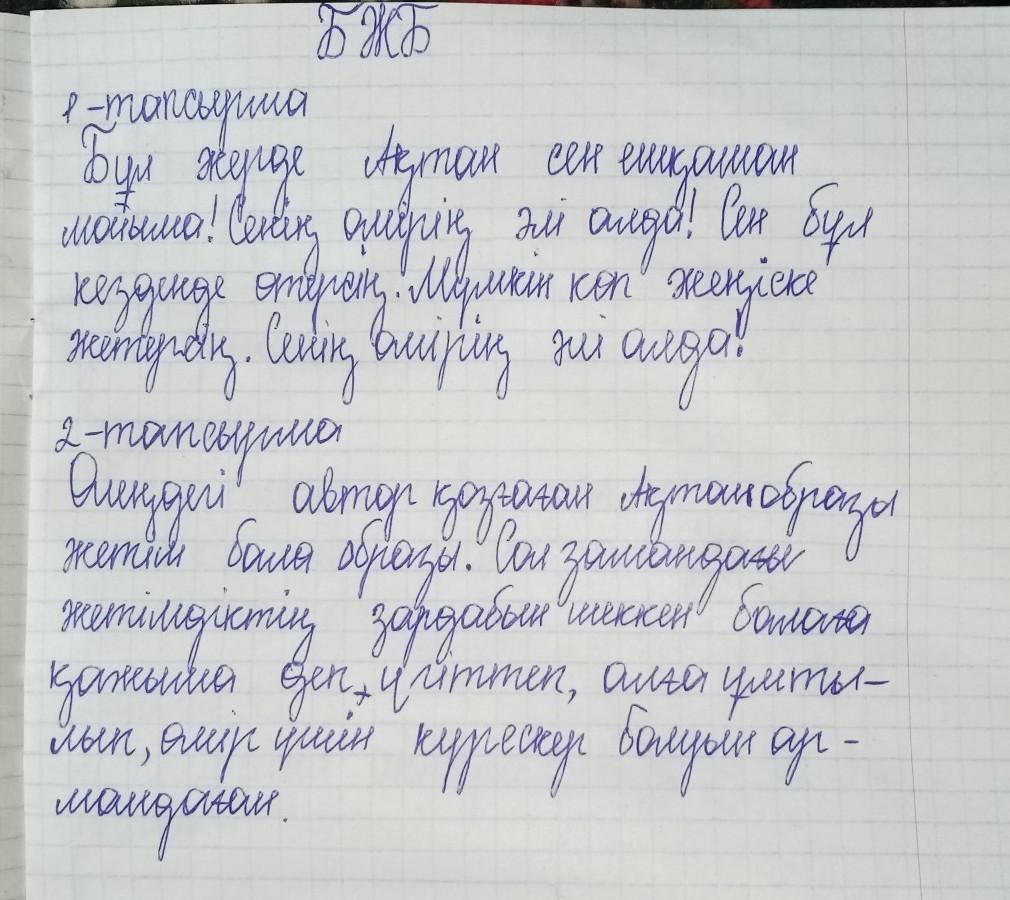 БЖБ
1-тапсырма
Бұл жерде Ақтан сен ешқашан
мойыма! Сенің өмірің әлі алда! Сен бұл
кезденде өтерсің. Мүмкін көп жеңіске
жетерсің. Сенің өмірің әлі алда!
2-тапсырма
Өлеңдегі автор қозғаған Ақтан образы
жетім бала образы. Сол замандағы
жетімдіктің зардабын шеккен балаға
қажыма деп, үгіттеп, алға ұмты-
лып, өмір үшін күрескер болуын ар-
мандаған.